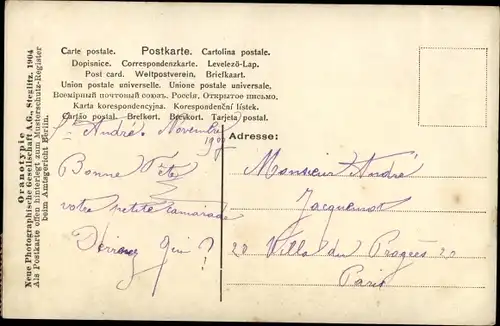 Carte postale. Postkarte. Cartolina postale.
Dopisnice. Correspondenzkarte. Levelező-Lap.
Post card. Weltpostverein. Briefkaart.
Union postale universelle. Unione postale universale.
Всемірный почтовый союзъ. Россія. Открытое письмо.
Karta korespondencyjna. Korespondenční lístek.
Cartão postal. Brefkort. Brevkort. Tarjeta postal.
Oranotypie
Neue Photographische Gesellschaft A.G., Steglitz. 1904
Als Postkarte offen hinterlegt zum Musterschutz-Register
beim Amtsgericht Berlin.
St André Novembre
Bonne Fête
votre petite camarade
Devinez qui ?
Adresse:
Monsieur André
Jacquemot
20 Villa du Progrès 20
Paris